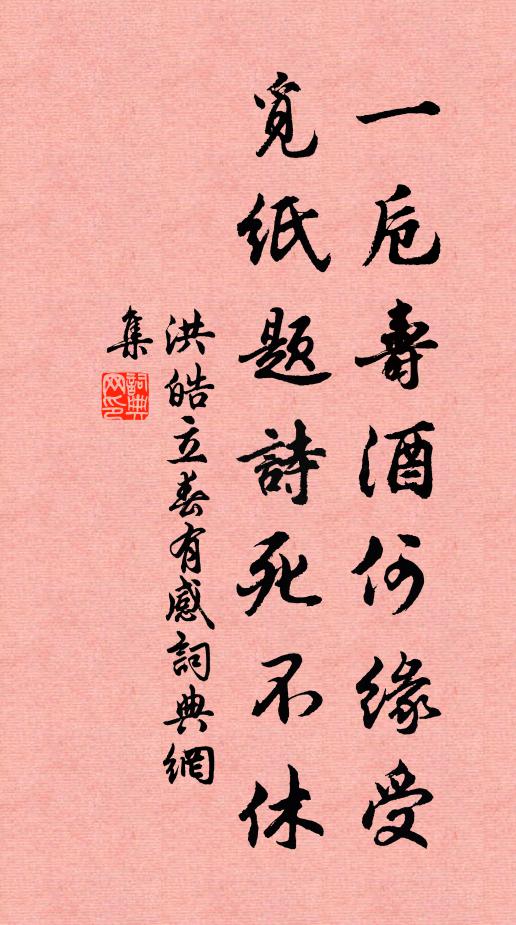 一卮壽酒何緣受
覓紙題詩死不休
洪皓立春有感詞典網
集
詞典網印